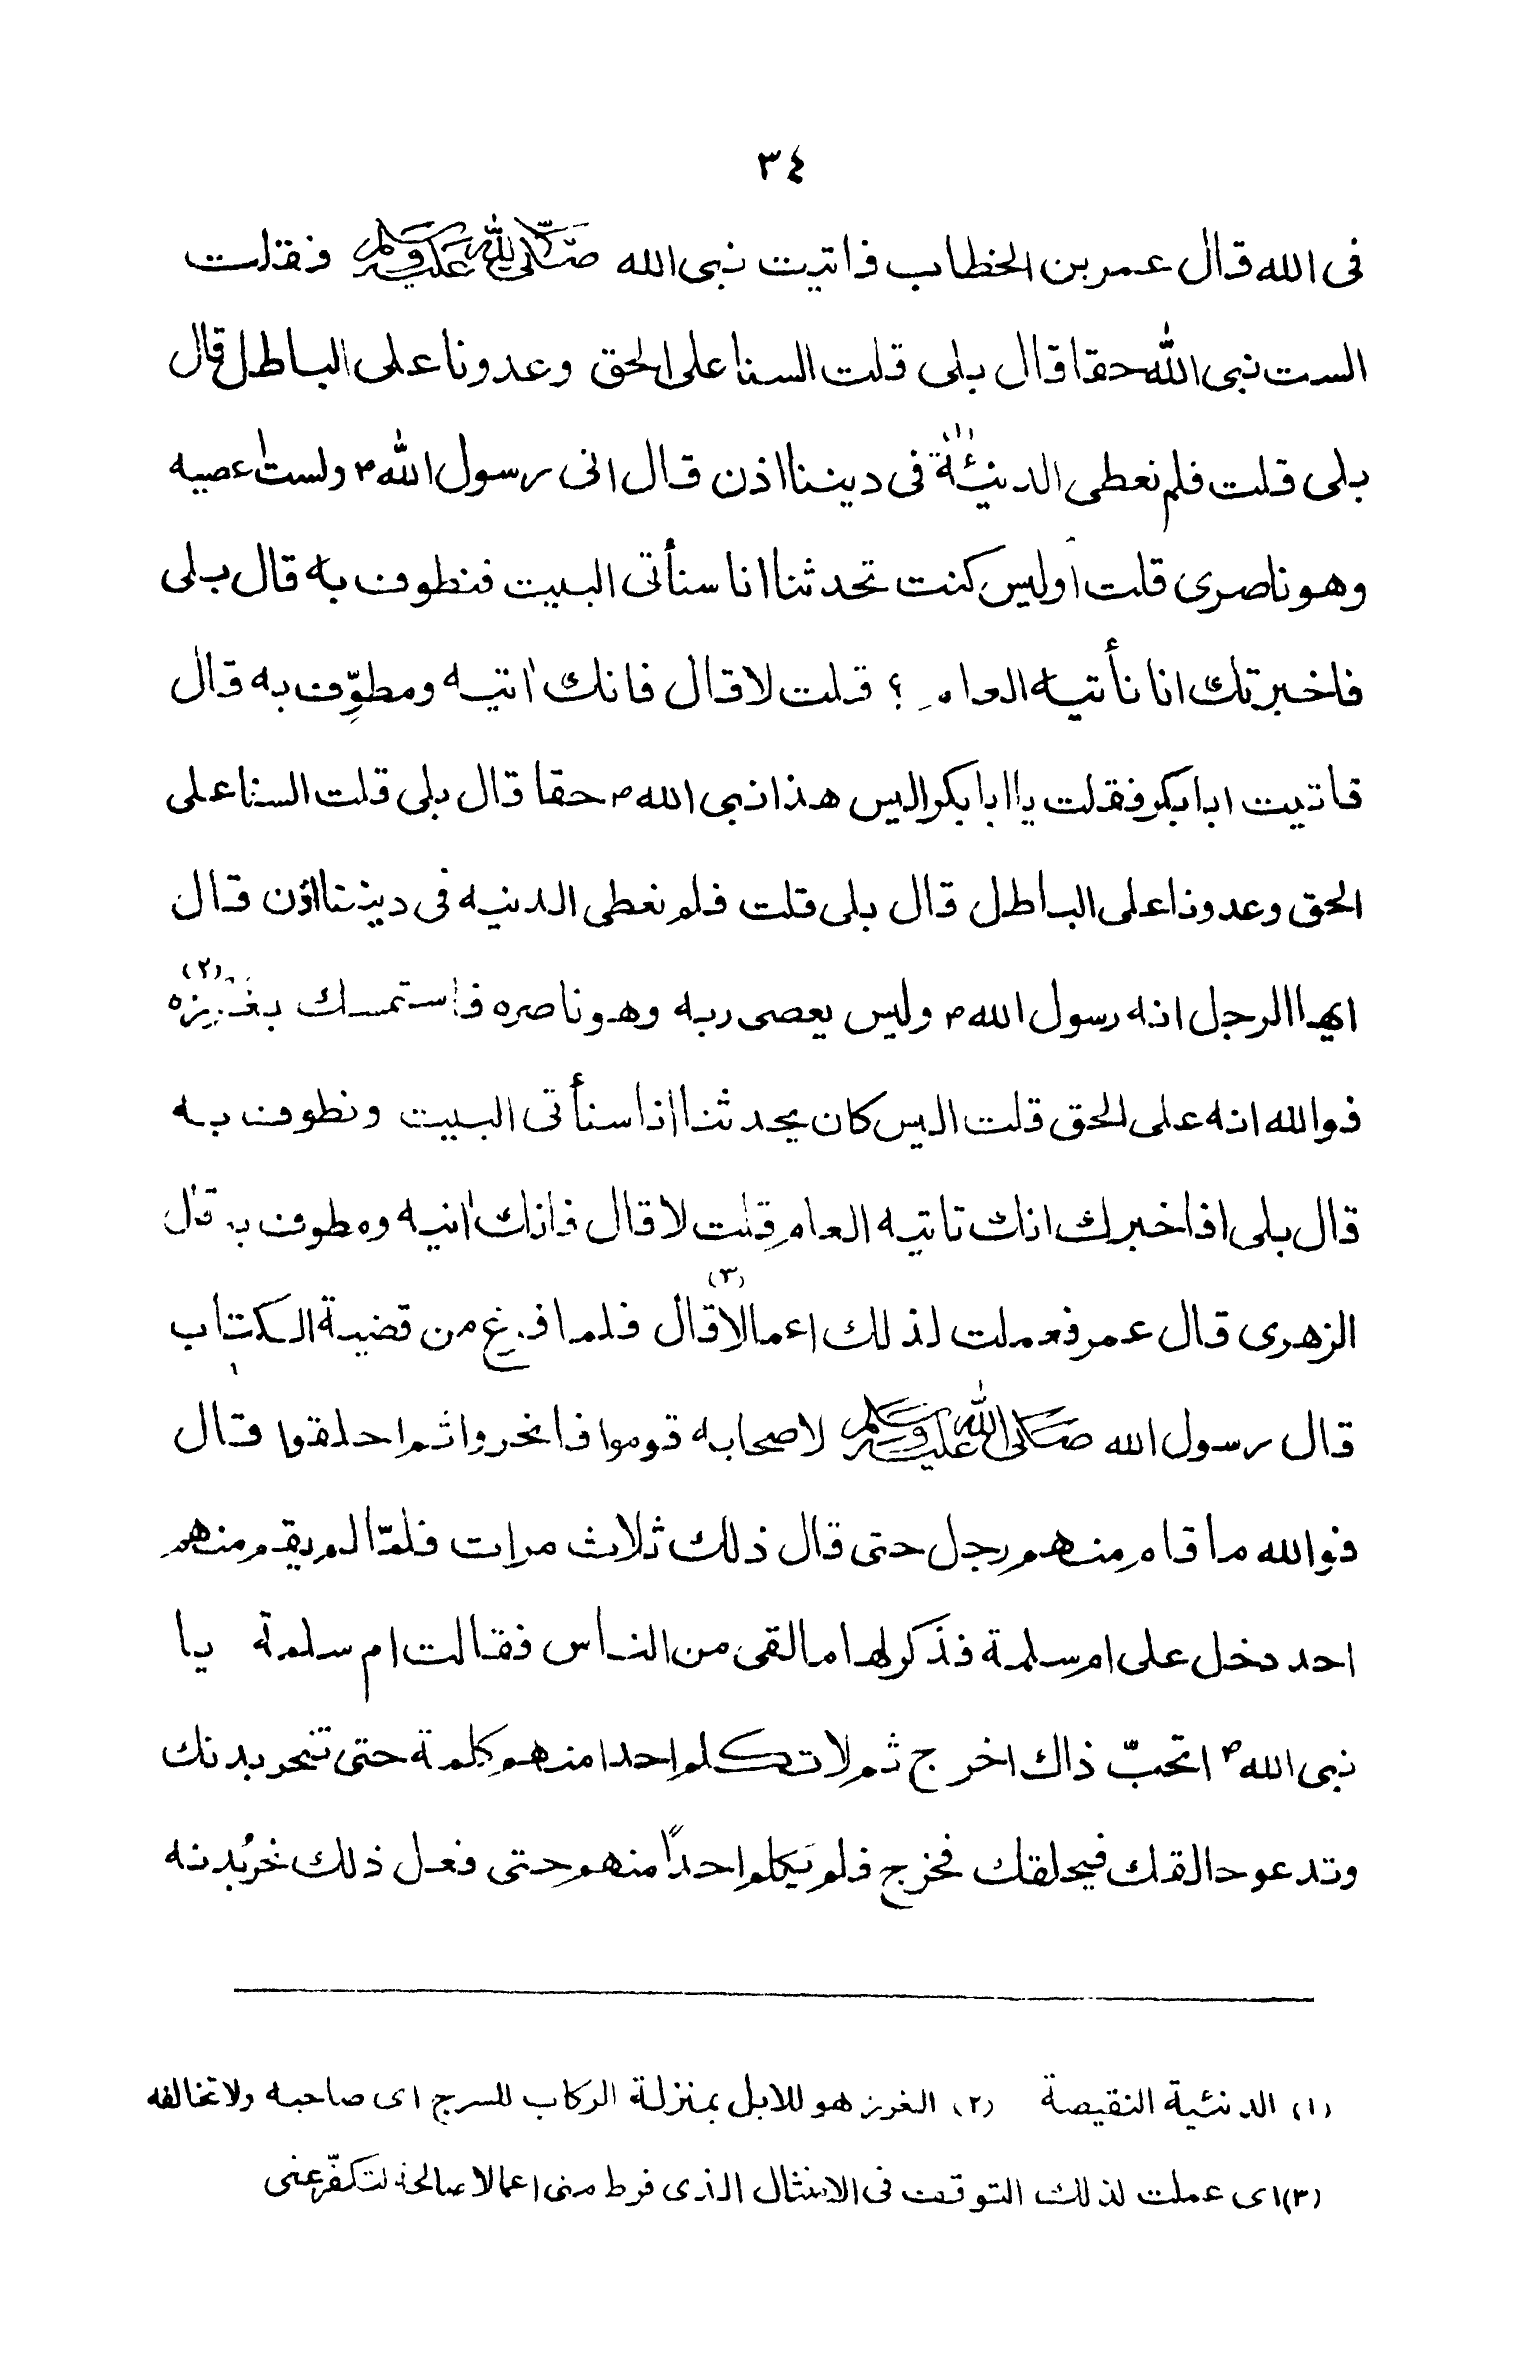 ٣٤
فى الله قال عمر بن الخطاب فاتيت نبى الله صلى الله عليه وسلم فقلت
الست نبى الله حقا قال بلى قلت السنا على الحق وعدونا على الباطل قال
بلى قلت فلم نعطى الدنيئة (١) فى ديننا اذن قال انى رسول الله ص ولست اعصيه
وهو ناصرى قلت اوليس كنت تحدثنا انا سنأتى البيت فنطوف به قال بلى
فاخبرتك انا نأتيه العام ؟ قلت لا قال فانك اٰتيه ومطوِّف به قال
فاتيت ابا بكر فقلت يا ابا بكر اليس هذا نبى الله ص حقا قال بلى قلت السنا على
الحق وعدونا على الباطل قال بلى قلت فلم نعطى الدنيه فى ديننا اذن قال
ايها الرجل انه رسول الله ص وليس يعصى ربه وهو ناصره فاستمسك بغرزه (٢)
فوالله انه على الحق قلت اليس كان يحدثنا انا سنأتى البيت ونطوف به
قال بلى افاخبرك انك تاتيه العام قلت لا قال فانك اٰتيه ومطوف به قال
الزهرى قال عمر فعملت لذلك اعمالا (٣) قال فلما فرغ من قضية الكتاب
قال رسول الله صلى الله عليه وسلم لاصحابه قوموا فانحروا ثم احلقوا قال
فوالله ما قام منهم رجل حتى قال ذلك ثلاث مرات فلمّا لم يقم منهم
احد دخل على ام سلمة فذكر لها ما لقى من الناس فقالت ام سلمة يا
نبى الله ص اتحبّ ذاك اخرج ثم لا تكلم احدا منهم كلمة حتى تنحر بدنك
وتدعو حالقك فيحلقك فخرج فلم يكلم احدًا منهم حتى فعل ذلك نحر بُدنه
(١) الدنئية النقيصة (٢) الغرز هو للابل بمنزلة الركاب للسرج اى صاحبه ولا تخالفه
(٣) اى عملت لذلك التوقف فى الامتثال الذى فرط منى اعمالا صالحة لتكفّر عنى